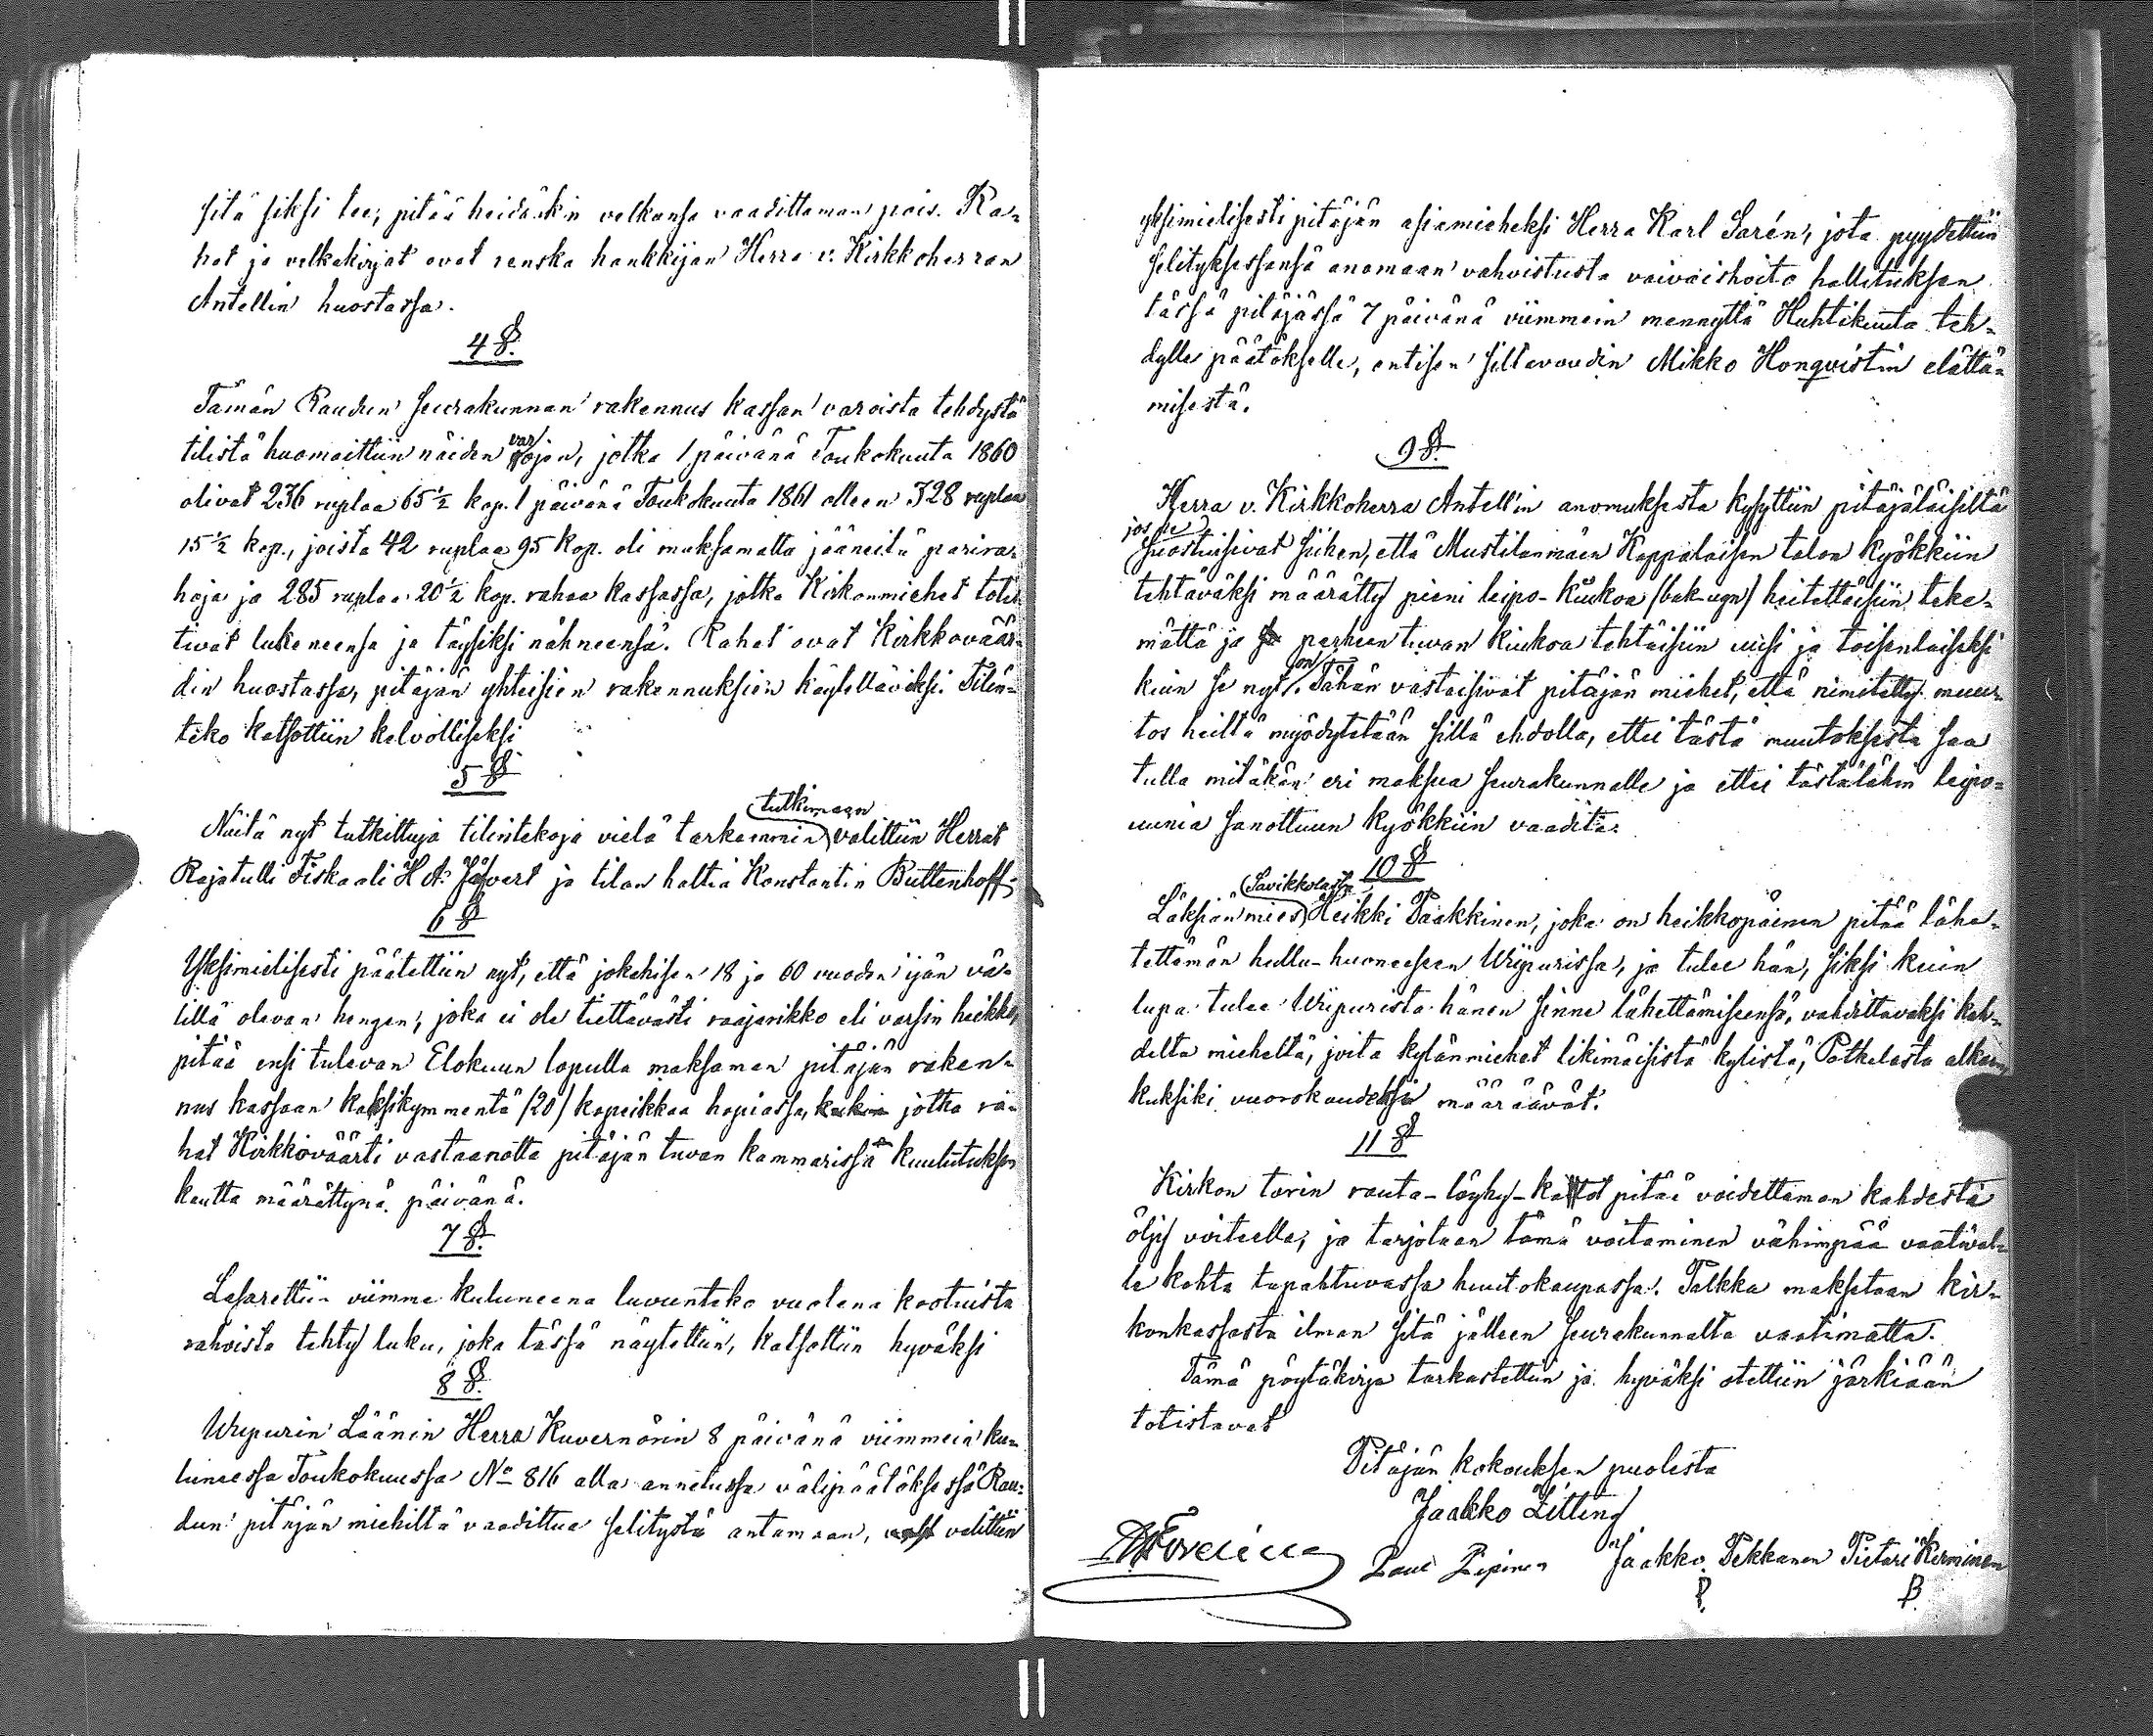 sitä siksi tee, pitää heidänkin velkansa vaadittaman pois. Ra-
hat ja velkakirjat ovat ranska hankkijan Herra v. Kirkkoherran
Antellin huostassa.
4 §.
Tämän Raudun seurakunnan rakennus kassan varoista tehdystä
tilistä huomaittiin näiden varojen, jotka 1 päivänä Toukokuuta 1860
olivat 236 ruplaa 65 ½ kop. 1 päivänä Toukokuuta 1861 olleen 328 ruplaa
15 ½ kop., joista 42 ruplaa 95 kop. oli maksamatta jääneitä para ra-
hoja ja 285 ruplaa 20 ½ kop. rahaa kassassa, jotka Kirkonmiehet totis-
tivat lukeneensa ja täysiksi nähneensä. Rahat ovat Kirkkoväär-
din huostassa, pitäjän yhteisien rakennuksien käytettäviksi. Tilin-
teko katsottiin kelvolliseksi
5 §
Näitä nyt tutkittuja tilintekoja vielä tarkemmin tutkimaan valittiin Herrat
Rajatulli Fiskaali H A: ja tilan haltia Konstantin Buttenhoff.
6 §
Yksimielisesti päätettiin nyt, että jokahisen 18 ja 60 vuoden ijän vä-
lillä olevan hengen, joka ei ole tiettävästi raajarikko eli varsin heikko,
pitää ensi tulevan Elokuun lopulla maksaman pitäjän raken-
nus kassaan kaksikymmentä /20/ kopeikkaa hopiassa, jotka ra-
hat Kirkkoväärti vastaanotta pitäjän tuvan kammarissa kuulutuksen
kautta määrättynä päivänä.
7 §.
Lasarettiin viimme kuluneena luvunteko vuotena kootuista
rahoista tehty luku, joka tässä näytettiin, katsottiin hyväksi
8 §.
Wiipurin Läänin Herra Kuvernörin 8 päivänä viimmein ku-
luneessa Toukokuussa No 816 alla annetussa välipäätöksessä Rau-
dun pitäjän miehiltä vaadittua selitystä antamaan, valittiin
yksimielisesti pitäjän asiamieheksi Herra Karl Sarén, jota pyydettiin
selityksessänsä anomaan vahvistusta vaivaishoito hallituksen
tässä pitäjässä 7 päivänä viimmein mennyttä Huhtikuuta teh-
dylle päätökselle, entisen siltavoudin Mikko Honqvistin elättä-
misestä.
9 §.
Herra v. Kirkkoherra Antell'in anomuksesta kysyttiin pitäjäläisiltä
jos he suostuisivat siihen, että Mustilanmäen Kappalaisen talon kyökkiin
tehtäväksi määrätty pieni leipo-kiukoa /bak-ugn/ heitettäisiin teke-
mättä ja perheen tuvan kiukoa tehtäisiin uusi ja toisenlaiseksi
kuin se nyt on. Tähän vastaisivat pitäjän miehet, että nimitetty muu-
tos heiltä myödytetään sillä ehdolla, ettei tästä muutoksesta saa
tulla mitäkän eri maksua seurakunnalle ja ettei tästälähin leipo-
uunia sanottuun kyökkiin vaadita.
10 §
Läksiänmies Savikkolasta Heikki Paakkinen, joka on heikkopäinen pitää lähe-
tettämän hullu-huoneeseen Wiipurissa, ja tulee hän, siksi kuin
lupa tulee Wiipurista hänen sinne lähettämiseensä, vahdittavaksi kah-
delta mieheltä, joita kylänmiehet likimäisistä kylistä, Potkelasta alkaen,
kuksiki vuorokaudeksi määräävät.
11 §
Kirkon tornin rauta-löyhy-katot pitää voidettaman kahdesta
öljy voiteella, ja tarjotaan tämä voitaminen vähimpää vaatival-
le kohta tapahtuvassa huutokaupassa. Palkka maksetaan kir-
konkassasta ilman sitä jälleen seurakunnalta vaatimatta.
Tämä pöytäkirja tarkastettiin ja hyväksi otettiin järkiään
totistavat
Pitäjän kokouksen puolesta
Jaakko Litting
Jaakko Pekkanen Pietari Kerminen